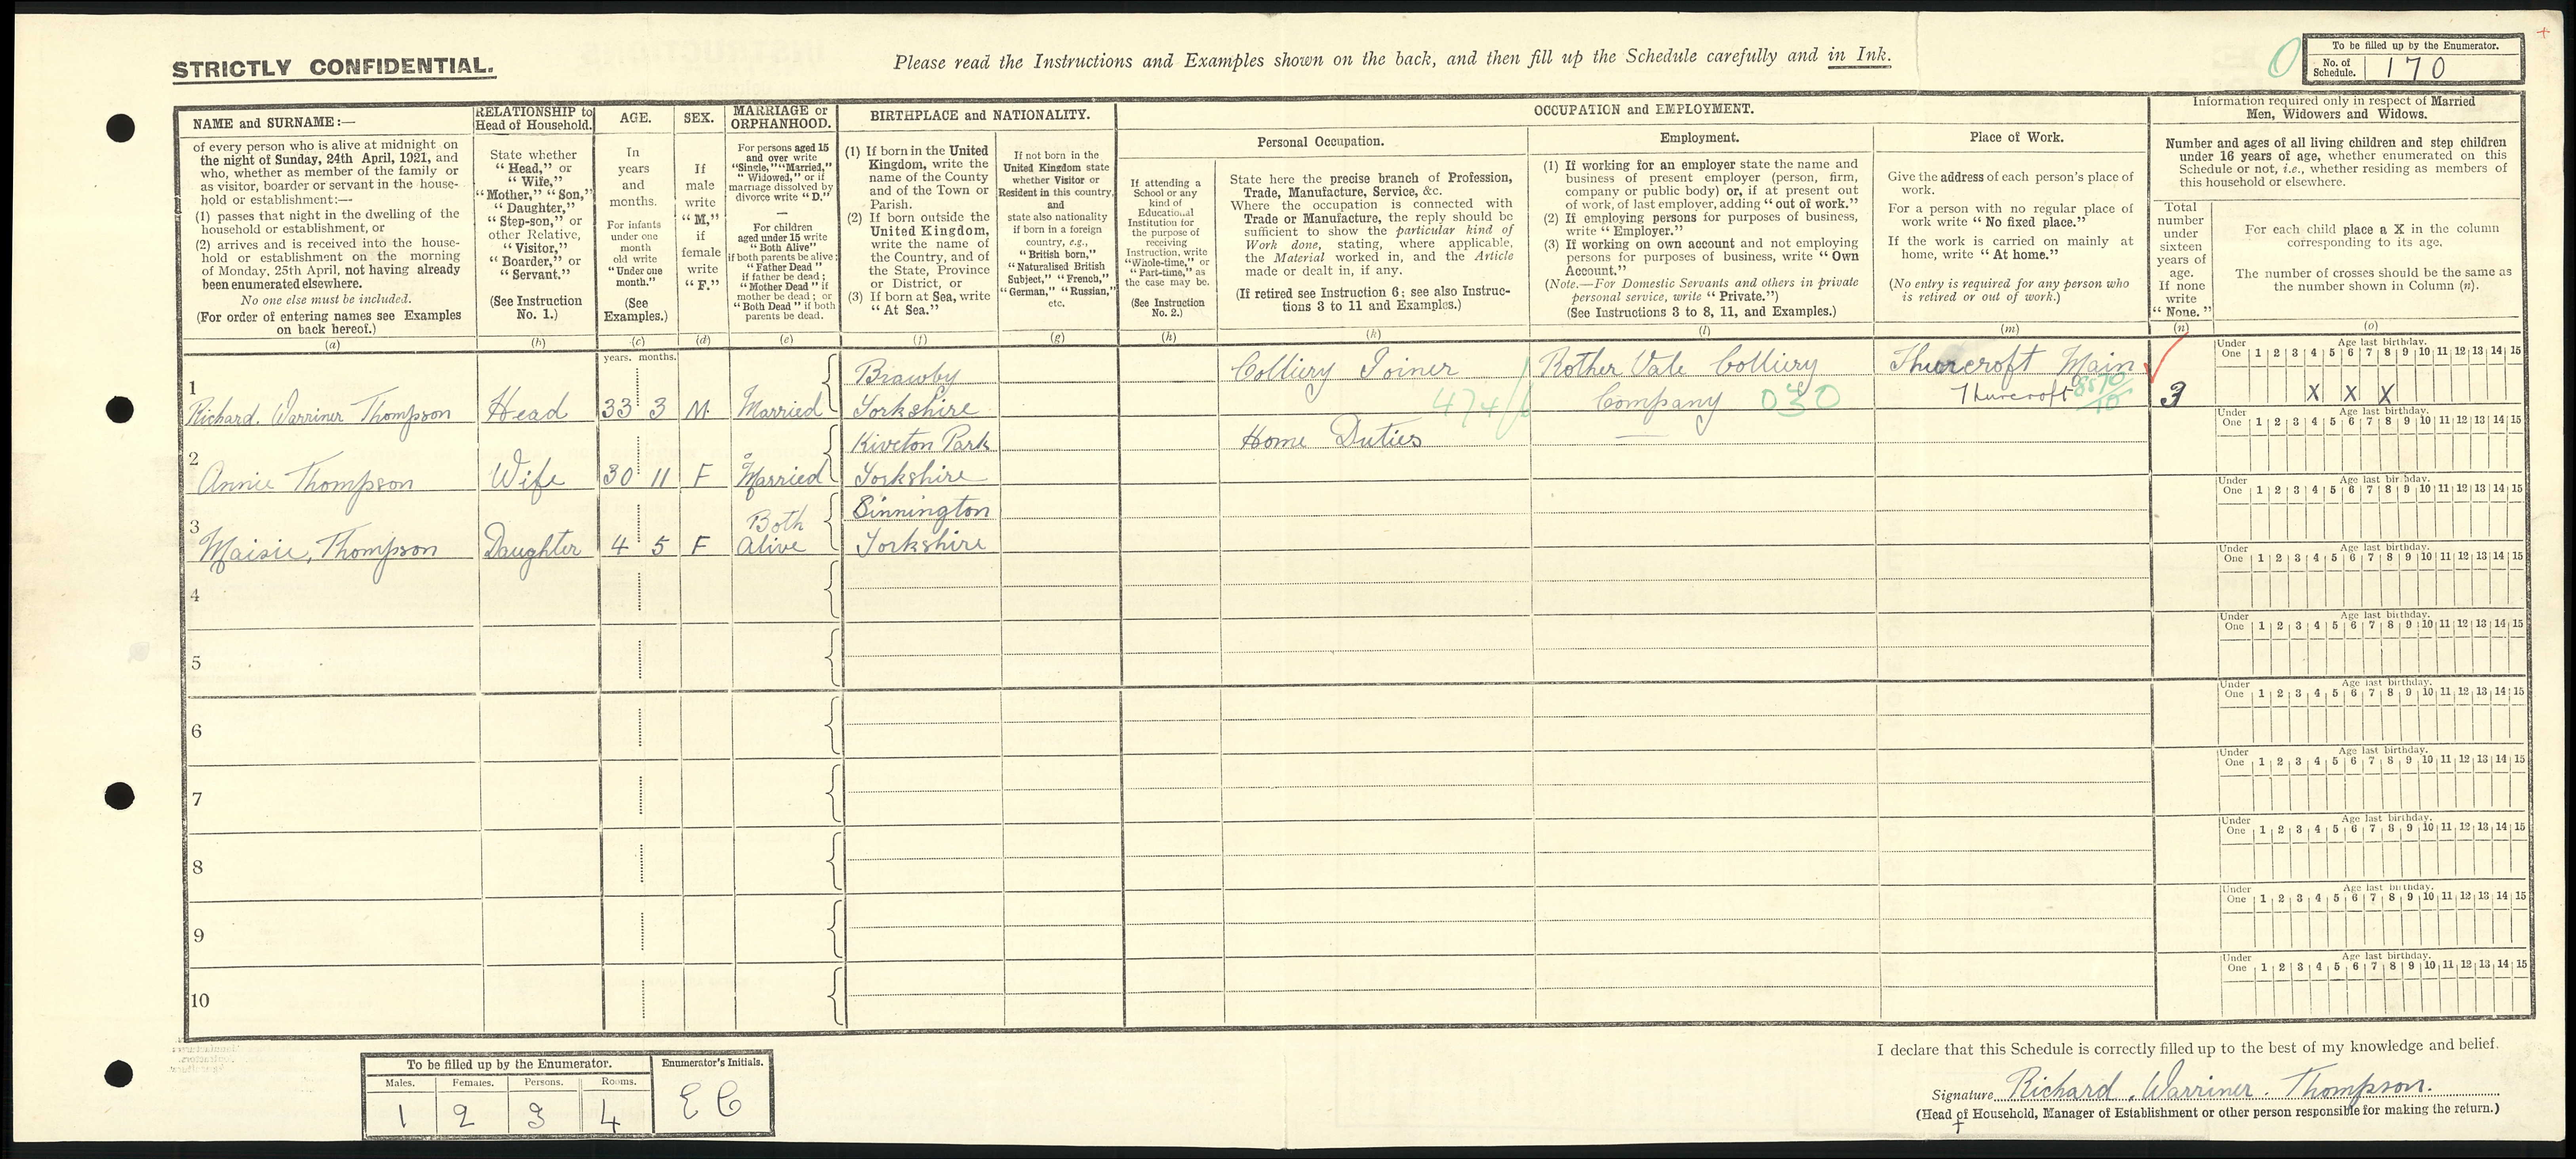 STRICTLY CONFIDENTIAL.
Please read the Instructions and Examples shown on the back, and then fill up the Schedule carefully and in Ink.
0
To be filled up by the Enumerator.
No. of Schedule. 170
NAME and SURNAME:—
of every person who is alive at midnight on
the night of Sunday, 24th April, 1921, and
who, whether as member of the family or
as visitor, boarder or servant in the house-
hold or establishment:—
(1) passes that night in the dwelling of the
household or establishment, or
(2) arrives and is received into the house-
hold or establishment on the morning
of Monday, 25th April, not having already
been enumerated elsewhere.
No one else must be included.
(For order of entering names see Examples
on back hereof.)
(a)
RELATIONSHIP to
Head of Household.
State whether
"Head," or
"Wife,"
"Mother," "Son,"
"Daughter,"
"Step-son," or
other Relative,
"Visitor,"
"Boarder," or
"Servant."
(See Instruction
No. 1.)
(b)
AGE.
In
years
and
months.
For infants
under one
month
old write
"Under one
month."
(See
Examples.)
(c)
SEX.
If
male
write
"M,"
if
female
write
"F."
(d)
MARRIAGE or
ORPHANHOOD.
For persons aged 15
and over write
"Single," "Married,"
"Widowed," or if
marriage dissolved by
divorce write "D."
For children
aged under 15 write
"Both Alive"
if both parents be alive;
"Father Dead"
if father be dead;
"Mother Dead" if
mother be dead; or
"Both Dead" if both
parents be dead.
(e)
BIRTHPLACE and NATIONALITY.
(1) If born in the United
Kingdom, write the
name of the County
and of the Town or
Parish.
(2) If born outside the
United Kingdom,
write the name of
the Country, and of
the State, Province
or District, or
(3) If born at Sea, write
"At Sea."
(f)
If not born in the
United Kingdom state
whether Visitor or
Resident in this country,
and
state also nationality
if born in a foreign
country, e.g.,
"British born,"
"Naturalised British
Subject," "French,"
"German," "Russian,"
etc.
(g)
OCCUPATION and EMPLOYMENT.
Personal Occupation.
If attending a
School or any
kind of
Educational
Institution for
the purpose of
receiving
Instruction, write
"Whole-time," or
"Part-time," as
the case may be.
(See Instruction
No. 2.)
(h)
State here the precise branch of Profession,
Trade, Manufacture, Service, &c.
Where the occupation is connected with
Trade or Manufacture, the reply should be
sufficient to show the particular kind of
Work done, stating, where applicable,
the Material worked in, and the Article
made or dealt in, if any.
(If retired see Instruction 6; see also Instruc-
tions 3 to 11 and Examples.)
(k)
Employment.
(1) If working for an employer state the name and
business of present employer (person, firm,
company or public body) or, if at present out
of work, of last employer, adding "out of work."
(2) If employing persons for purposes of business,
write "Employer."
(3) If working on own account and not employing
persons for purposes of business, write "Own
Account."
(Note.—For Domestic Servants and others in private
personal service, write "Private.")
(See Instructions 3 to 8, 11, and Examples.)
(l)
Place of Work.
Give the address of each person's place of
work.
For a person with no regular place of
work write "No fixed place."
If the work is carried on mainly at
home, write "At home."
(No entry is required for any person who
is retired or out of work.)
(m)
Information required only in respect of Married
Men, Widowers and Widows.
Number and ages of all living children and step children
under 16 years of age, whether enumerated on this
Schedule or not, i.e., whether residing as members of
this household or elsewhere.
Total
number
under
sixteen
years of
age.
If none
write
"None."
(n)
For each child place a X in the column
corresponding to its age.
The number of crosses should be the same as
the number shown in Column (n).
(o)
years. months.
Under One Age last birthday. 1 2 3 4 5 6 7 8 9 10 11 12 13 14 15
1 Richard. Warriner Thompson Head 33 3 M. Married Brawby Yorkshire Colliery Joiner 474/ Rother Vale Colliery Company 030 Thurcroft Main Thurcroft 3 X X X
Under One Age last birthday. 1 2 3 4 5 6 7 8 9 10 11 12 13 14 15
2 Annie Thompson Wife 30 11 F Married Kiveton Park Yorkshire Home Duties —
Under One Age last birthday. 1 2 3 4 5 6 7 8 9 10 11 12 13 14 15
3 Maisie, Thompson Daughter 4 5 F Both Alive Sinnington Yorkshire
Under One Age last birthday. 1 2 3 4 5 6 7 8 9 10 11 12 13 14 15
4
Under One Age last birthday. 1 2 3 4 5 6 7 8 9 10 11 12 13 14 15
5
Under One Age last birthday. 1 2 3 4 5 6 7 8 9 10 11 12 13 14 15
6
Under One Age last birthday. 1 2 3 4 5 6 7 8 9 10 11 12 13 14 15
7
Under One Age last birthday. 1 2 3 4 5 6 7 8 9 10 11 12 13 14 15
8
Under One Age last birthday. 1 2 3 4 5 6 7 8 9 10 11 12 13 14 15
9
Under One Age last birthday. 1 2 3 4 5 6 7 8 9 10 11 12 13 14 15
10
To be filled up by the Enumerator.
Males. Females. Persons. Rooms.
1 2 3 4
Enumerator's Initials.
E C
I declare that this Schedule is correctly filled up to the best of my knowledge and belief.
Signature Richard. Warriner. Thompson.
(Head of Household, Manager of Establishment or other person responsible for making the return.)